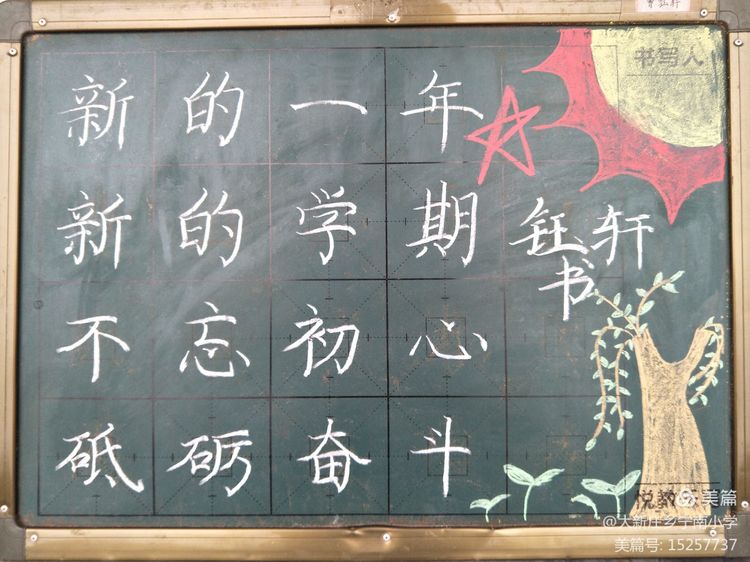 书写人
新的一年
新的学期
不忘初心
砥砺奋斗
钰轩
书
悦教
美篇
@大新庄乡宁南小学
美篇号: 15257737